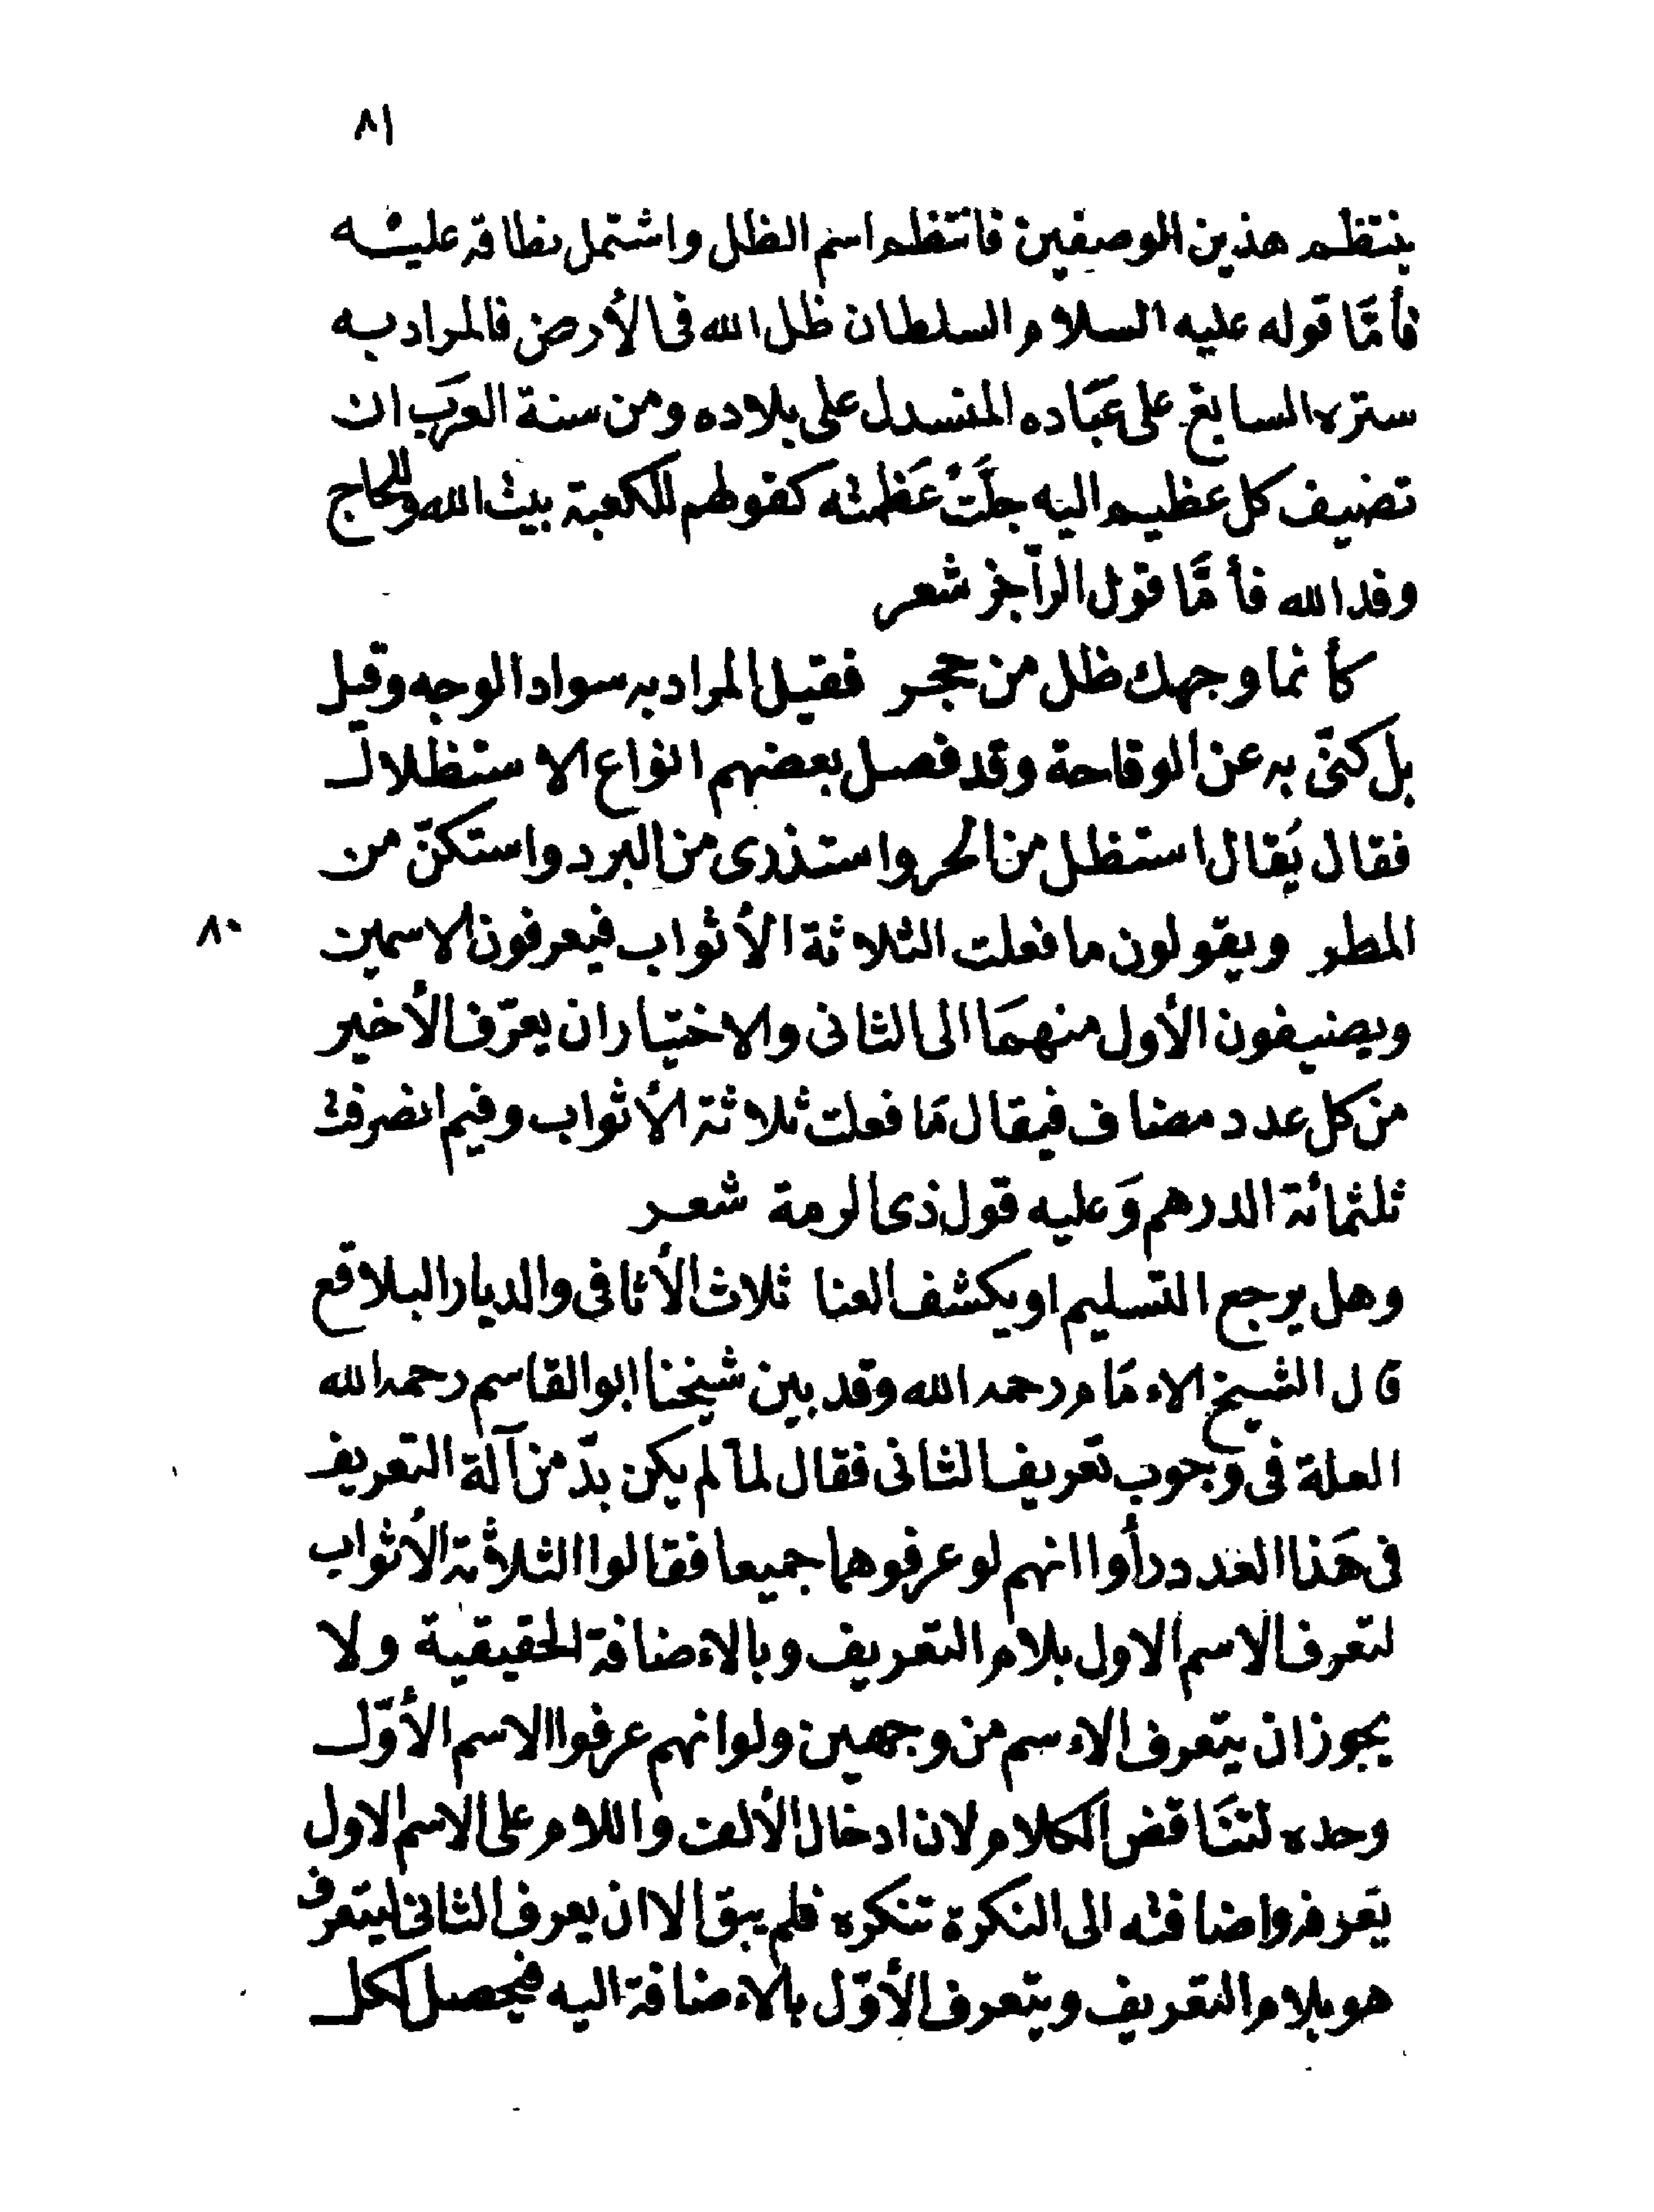 ٨١
ينتظم هذين الوصفين فانتظم اسم الظل واشتمل نطاقه عليه
فأمّا قوله عليه السلام السلطان ظل الله فى الأرض فالمراد به
ستره السابغ على عبَاده المنسدل على بلاده ومن سنة العرَب ان
تضيف كل عظيم اليه جلَّتْ عَظمته كقولهم للكعبة بيت الله وللحاج
وفد الله فأمَّا قول الراجز شعر
كأنما وجهك ظل من حجر فقيل المراد به سواد الوجه وقيل
بل كنّى به عن الوقاحة وقد فصل بعضهم انواع الاستظلال
فقال يُقال استظل من الحر واستذرى من البرد واستكنّ من
المطر ويقولون ما فعلت الثلاثة الأثواب فيعرفون الاسمين
٨٠
ويضيفون الأول منهمَا الى الثانى والاختيار ان يعرّف الأخير
من كل عدد مضاف فيقال مَا فعلت ثلاثة الأثواب وفيم انصرفت
ثلثمائة الدرهم وَعليه قول ذى الرمة شعر
وهل يرجع التسليم او يكشف العنا ثلاث الأثافى والديار البلاقع
قال الشيخ الاءمَام رحمه الله وقد بين شيخنا ابو القاسم رحمه الله
العلة فى وجوب تعريف الثانى فقال لما لم يكن بدّ من آلة التعريف
فى هَذا العدد رأوا انهم لو عرفوهما جميعا فقالوا الثلاثة الأثواب
لتعرف الاسم الاول بلام التعريف وبالاءضافة الحقيقية ولا
يجوز ان يتعرف الاءسم من وجهين ولو انهم عرفوا الاسم الأوّل
وحده لتنَاقض الكلام لان ادخال الألف واللام على الاسم الاول
يَعرفه واضافته الى النكرة تنكره فلم يبق الا ان يعرف الثانى ليتعرف
هو بلام التعريف ويتعرف الأوّل بالاءضافة اليه فيحصل لكل